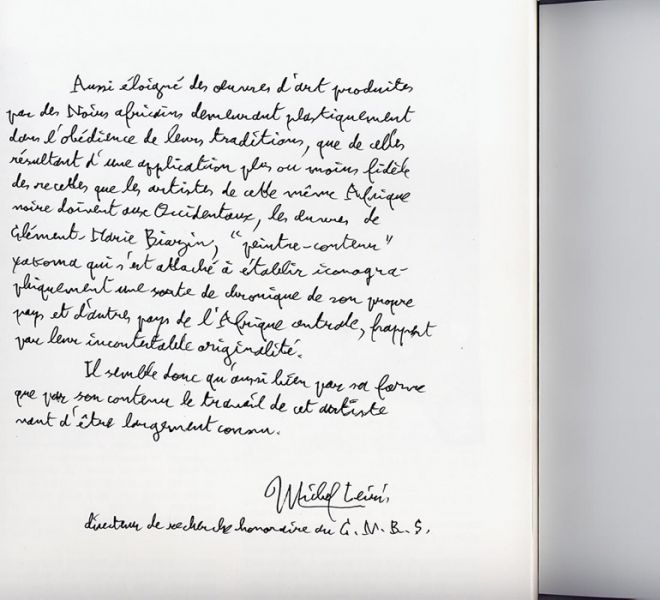 Aussi éloigné des œuvres d'art produites
par des Noirs africains demeurant plastiquement
dans l'obédience de leurs traditions, que de celles
résultant d'une application plus ou moins fidèle
des recettes que les artistes de cette même Afrique
noire doivent aux Occidentaux, les œuvres de
Clément-Marie Biazin, "peintre-conteur"
yakoma qui s'est attaché à établir iconogra-
phiquement une sorte de chronique de son propre
pays et d'autres pays de l'Afrique centrale, frappent
par leur incontestable originalité.
Il semble donc qu'aussi bien par sa forme
que par son contenu le travail de cet artiste
vaut d'être largement connu.
Michel Leiris
directeur de recherche honoraire au C.N.R.S.